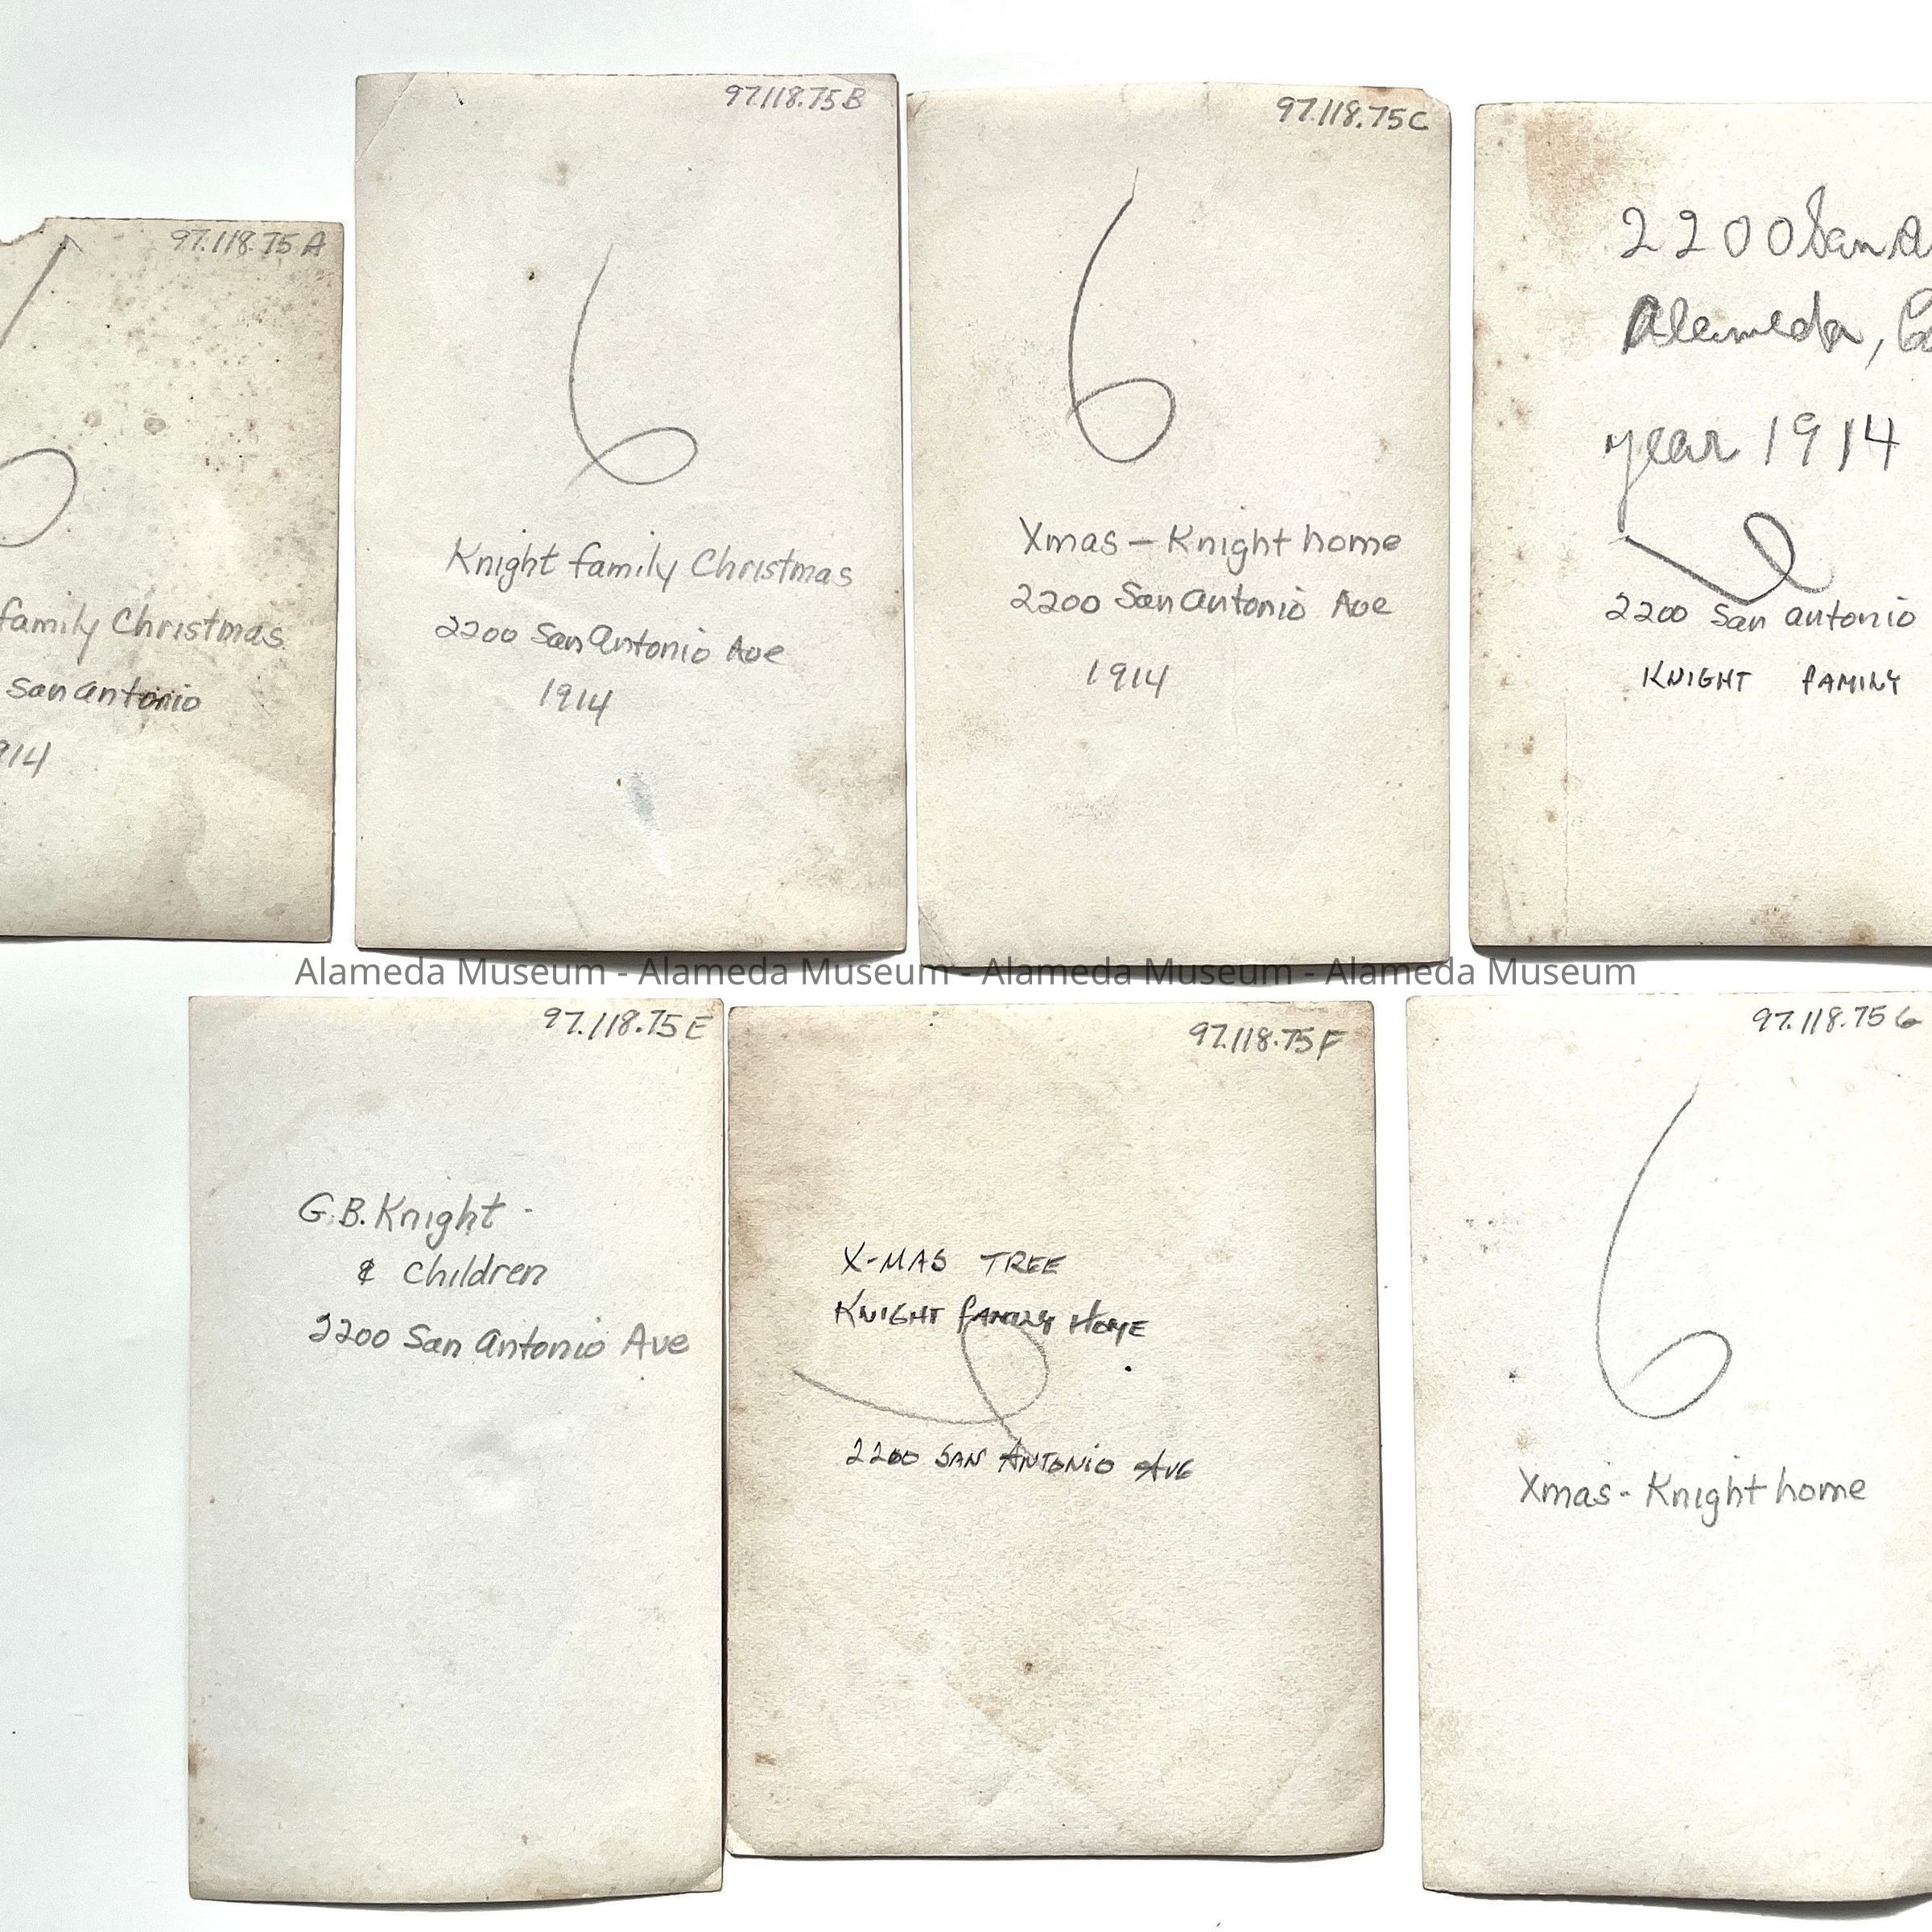 97.118.75 A
family Christmas
San Antonio
914
97.118.75 B
6
Knight family Christmas
2200 San Antonio Ave
1914
97.118.75 C
6
Xmas - Knight home
2200 San Antonio Ave
1914
2200 San A
Alameda, Ca
year 1914
2200 San Antonio
KNIGHT FAMILY
Alameda Museum - Alameda Museum - Alameda Museum - Alameda Museum
97.118.75 E
G.B. Knight -
& Children
2200 San Antonio Ave
97.118.75 F
X-MAS TREE
KNIGHT FAMILY HOME
2200 SAN ANTONIO AVE
97.118.75 G
6
Xmas - Knight home